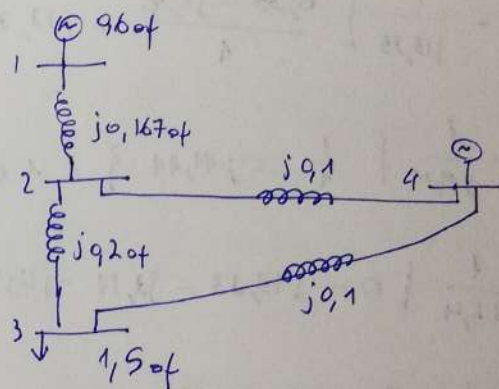 0,6 of
1
j0,167of
2
j0,1
4
j0,2of
j0,1
3
1,5of